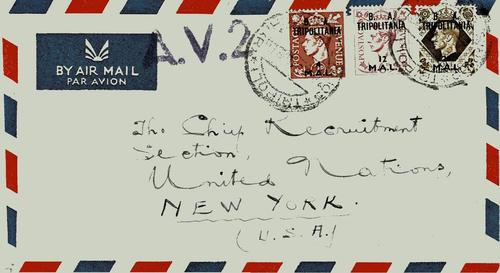 A.V.2
BY AIR MAIL
PAR AVION
B. A.
TRIPOLITANIA
M.A.L.
B. A.
TRIPOLITANIA
12
M.A.L.
B. A.
TRIPOLITANIA
M.A.L.
POSTAGE
REVENUE
POSTAGE
The Chief Recruitment
Section,
United Nations,
NEW YORK.
(U.S.A.)